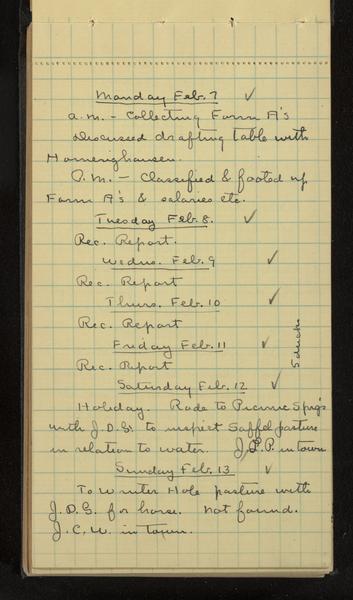 Monday Feb. 7 ✓
a.m. - Collecting Form A's
Discussed drafting table with
Homerighausen.
P.M. - Classified & footed up
Form A's & salaries etc.
Tuesday Feb. 8. ✓
Rec. Report.
Wednes. Feb. 9 ✓
Rec. Report
Thurs. Feb. 10 ✓
Rec. Report
Friday Feb. 11 ✓
Rec. Report
Saturday Feb. 12 ✓
Holiday. Rode to Picnic Spgs
with J.D.S. to inspect Saffel pasture
in relation to water. J.P. in town
Sunday Feb. 13 ✓
To Winter Hole pasture with
J.D.S. for horse. Not found.
J.C.W. in town.
5 ducks